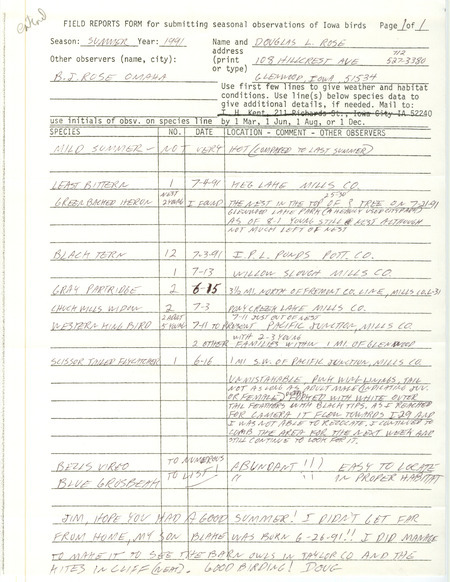 FIELD REPORTS FORM for submitting seasonal observations of Iowa birds Page 1 of 1
Season: SUMMER Year: 1991 Name and DOUGLAS L. ROSE
address 712
Other observers (name, city): (print 108 HILLCREST AVE 527-3380
or type)
B.J. ROSE OMAHA GLENWOOD, IOWA, 51534
Use first few lines to give weather and habitat
conditions. Use line(s) below species data to
give additional details, if needed. Mail to:
T. H. Kent, 211 Richards St., Iowa City IA 52240
use initials of obsv. on species line by 1 Mar, 1 Jun, 1 Aug, or 1 Dec.
SPECIES NO. DATE LOCATION - COMMENT - OTHER OBSERVERS
MILD SUMMER - NOT VERY HOT (COMPARED TO LAST SUMMER)
LEAST BITTERN 1 7-4-91 KEG LAKE MILLS CO.
GREEN BACKED HERON NEST 2 YOUNG I FOUND THE NEST IN THE TOP OF A 25-30 TREE ON 7-21-91
GLENWOOD LAKE PARK (A HEAVILY USED CITY PARK)
AS OF 8-1 YOUNG STILL @ NEST ALTHOUGH
NOT MUCH LEFT OF NEST
BLACK TERN 12 7-3-91 I.P.L. PONDS POTT. CO.
1 7-13 WILLOW SLOUGH MILLS CO.
GRAY PARTRIDGE 2 6-15 3½ MI. NORTH OF FREMONT CO. LINE, MILLS CO. L-31
CHUCK WILLS WIDOW 2 7-3 PONY CREEK LAKE MILLS CO.
WESTERN KING BIRD 2 ADULT 5 YOUNG 7-11 TO PRESENT 7-11 JUST OUT OF NEST PACIFIC JUNCTION, MILLS CO.
WITH 2-3 YOUNG
2 OTHER FAMILIES WITHIN 1 MI. OF GLENWOOD
SCISSOR TAILED FLYCATCHER 1 6-16 1 MI. S.W. OF PACIFIC JUNCTION, MILLS CO.
UNMISTAKABLE, PINK WING LININGS, TAIL
NOT AS LONG AS ADULT MALE (INDICATING JUV.
OR FEMALE) FORKED WITH WHITE OUTER
TAIL FEATHERS WITH BLACK TIPS. AS I REACHED
FOR CAMERA IT FLEW TOWARDS I 29 AND
I WAS NOT ABLE TO RELOCATE. I CONTINUED TO
COMB THE AREA FOR THE NEXT WEEK AND
STILL CONTINUE TO LOOK FOR IT.
BELLS VIREO TO NUMEROUS ABUNDANT!!! EASY TO LOCATE
BLUE GROSBEAK TO LIST! " IN PROPER HABITAT
JIM, HOPE YOU HAD A GOOD SUMMER! I DIDN'T GET FAR
FROM HOME, MY SON BLAKE WAS BORN 6-26-91!! I DID MANAGE
TO MAKE IT TO SEE THE BARN OWLS IN TAYLOR CO AND THE
KITES IN CLIFF (NEAT). GOOD BIRDING! DOUG